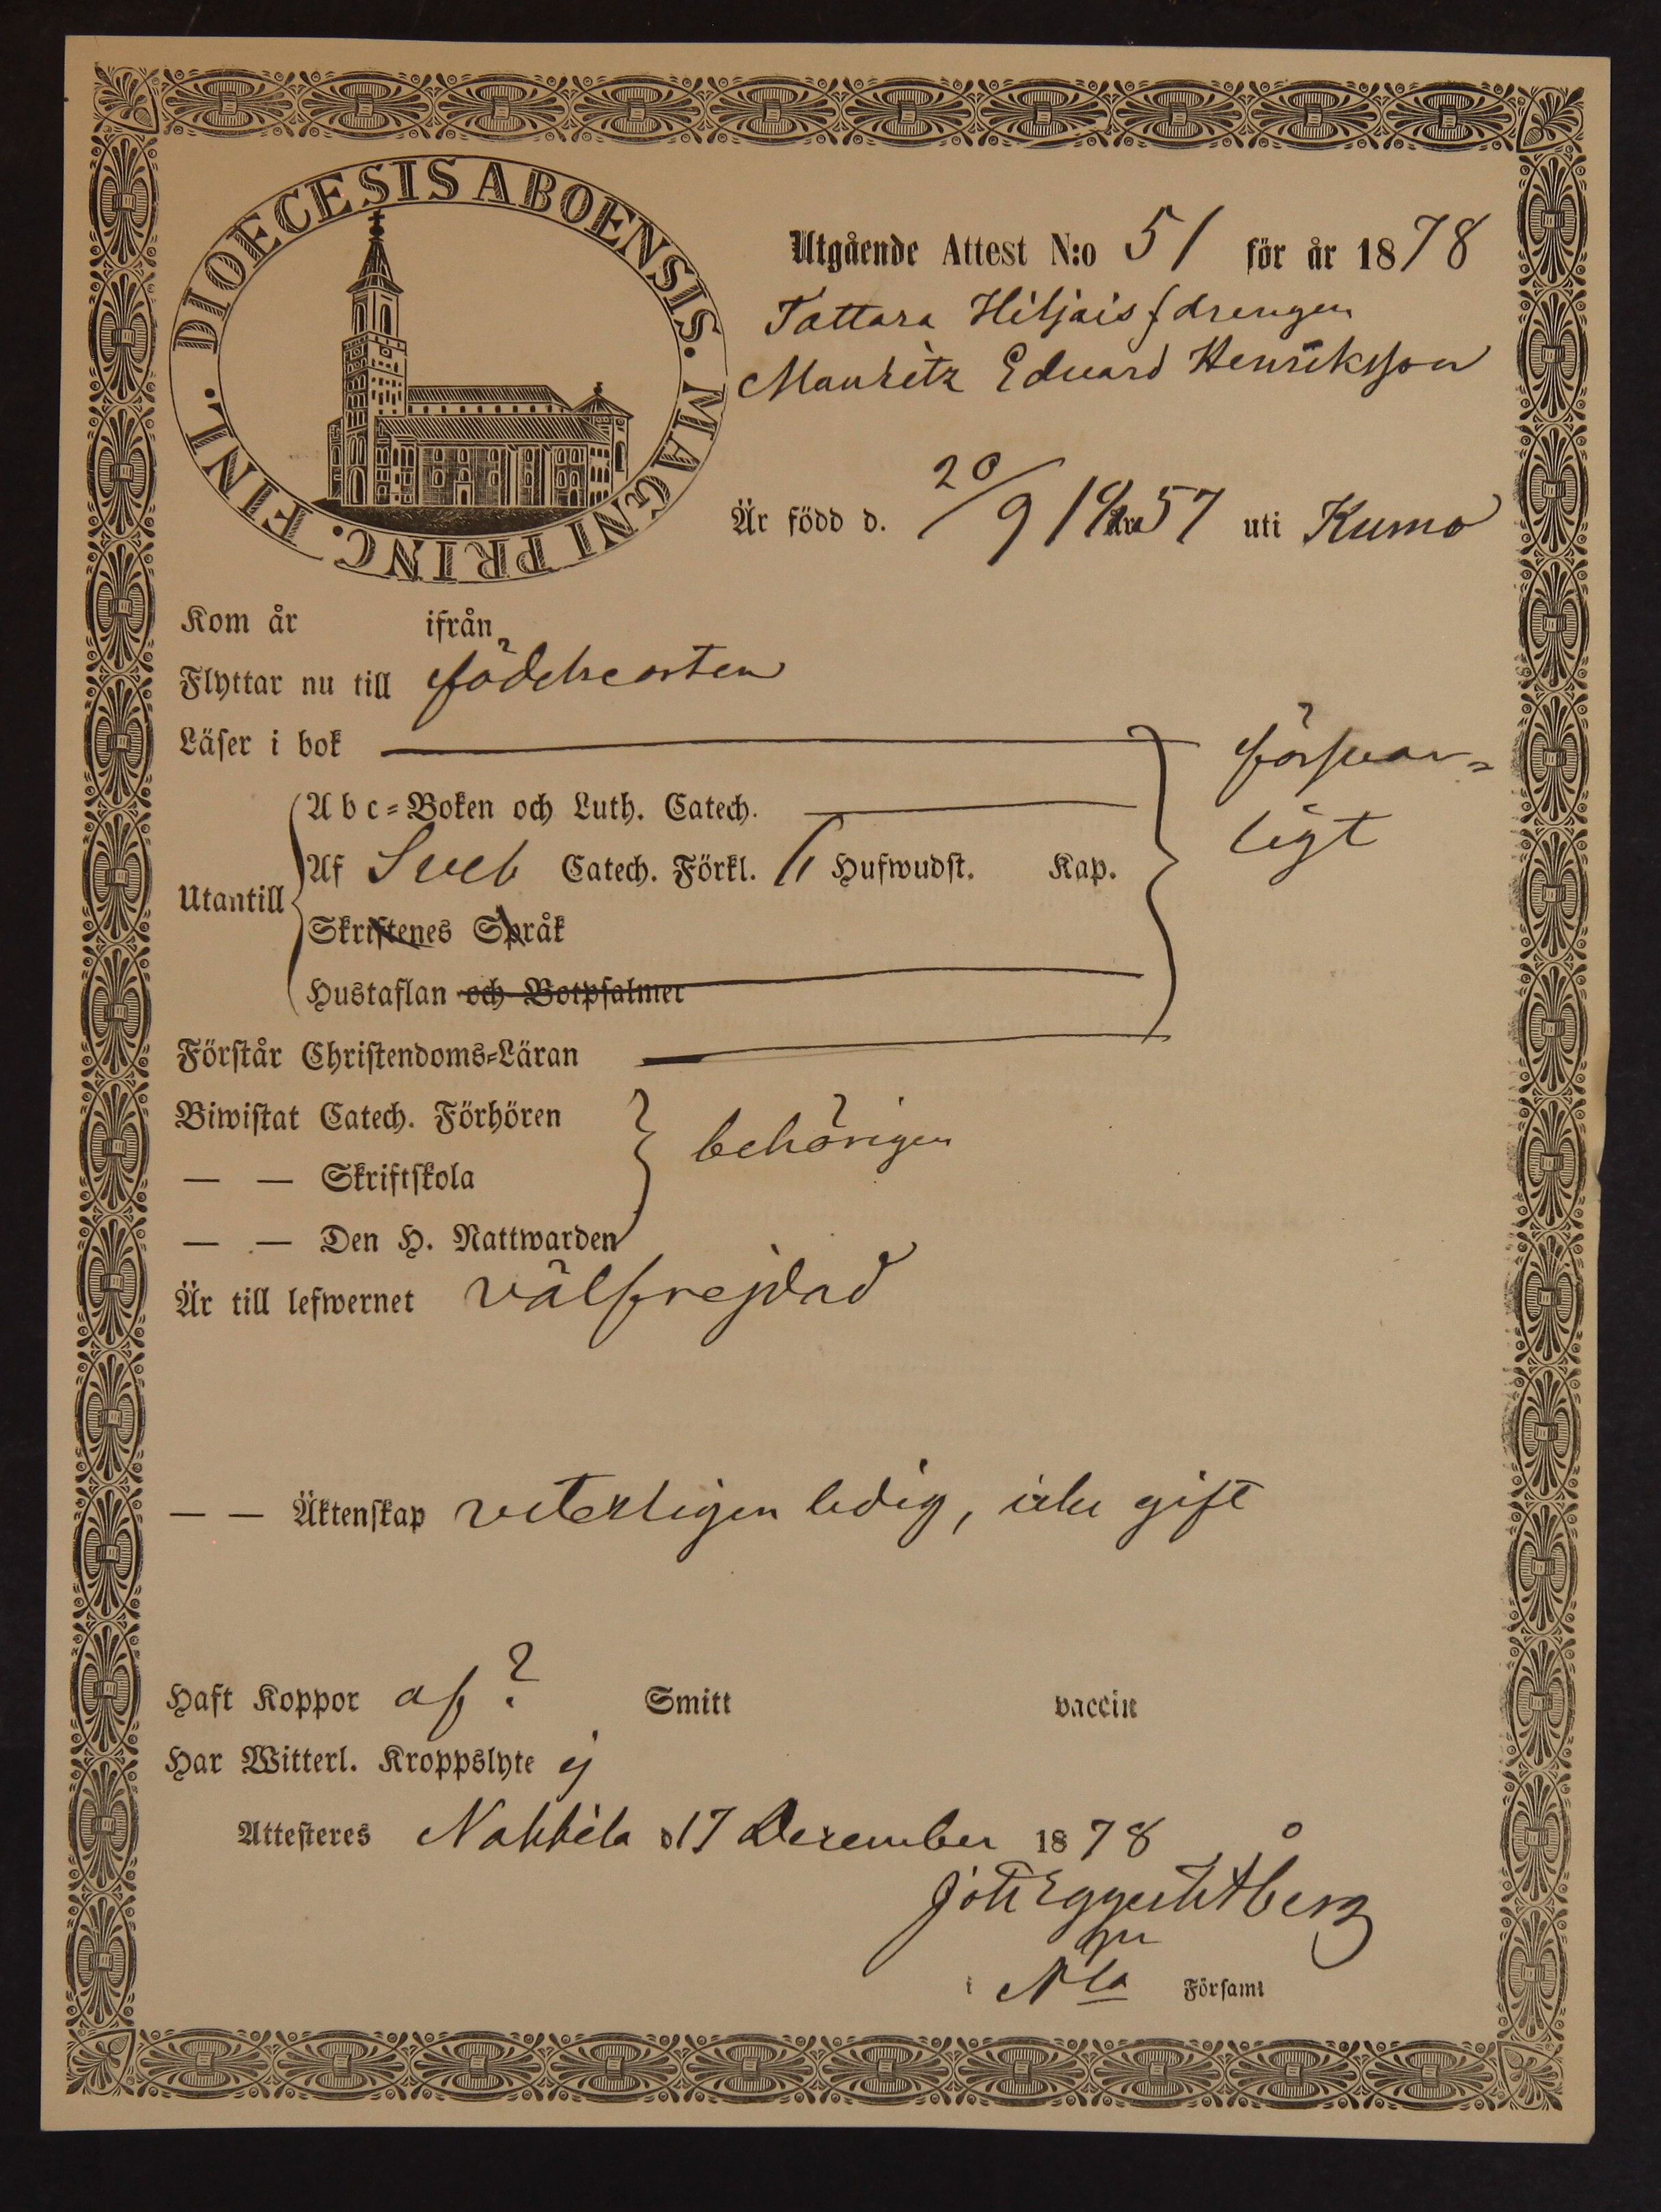 DIOECESIS ABOENSIS. MAGNI PRINC. FINL.
Utgående Attest N:o 51 för år 1878
Tattara Hiljais drengen
Mauritz Eduard Henriksson
Är född d. 20/9 1857 uti Kumo
Kom år ifrån
Flyttar nu till födelseorten
Läser i bok försvar=
Abc=Boken och Luth. Catech.
ligt
Af Sveb Catech. Förkl. Hufwudst. Kap.
Utantill
Skriftenes Språk
Hustaflan och Botpsalmer
Förstår Christendoms=Läran
Biwistat Catech. Förhören
behörigen
— — Skriftskola
— — Den H. Nattwarden
Är till lefwernet välfrejdad
— — Äktenskap veterligen ledig, icke gift
Haft Koppor af ? Smitt vaccin
Har Witterl. Kroppslyte ej
Attesteres Nakkila d 17 December 1878
Joh Eggert Åberg
i Nla Församl